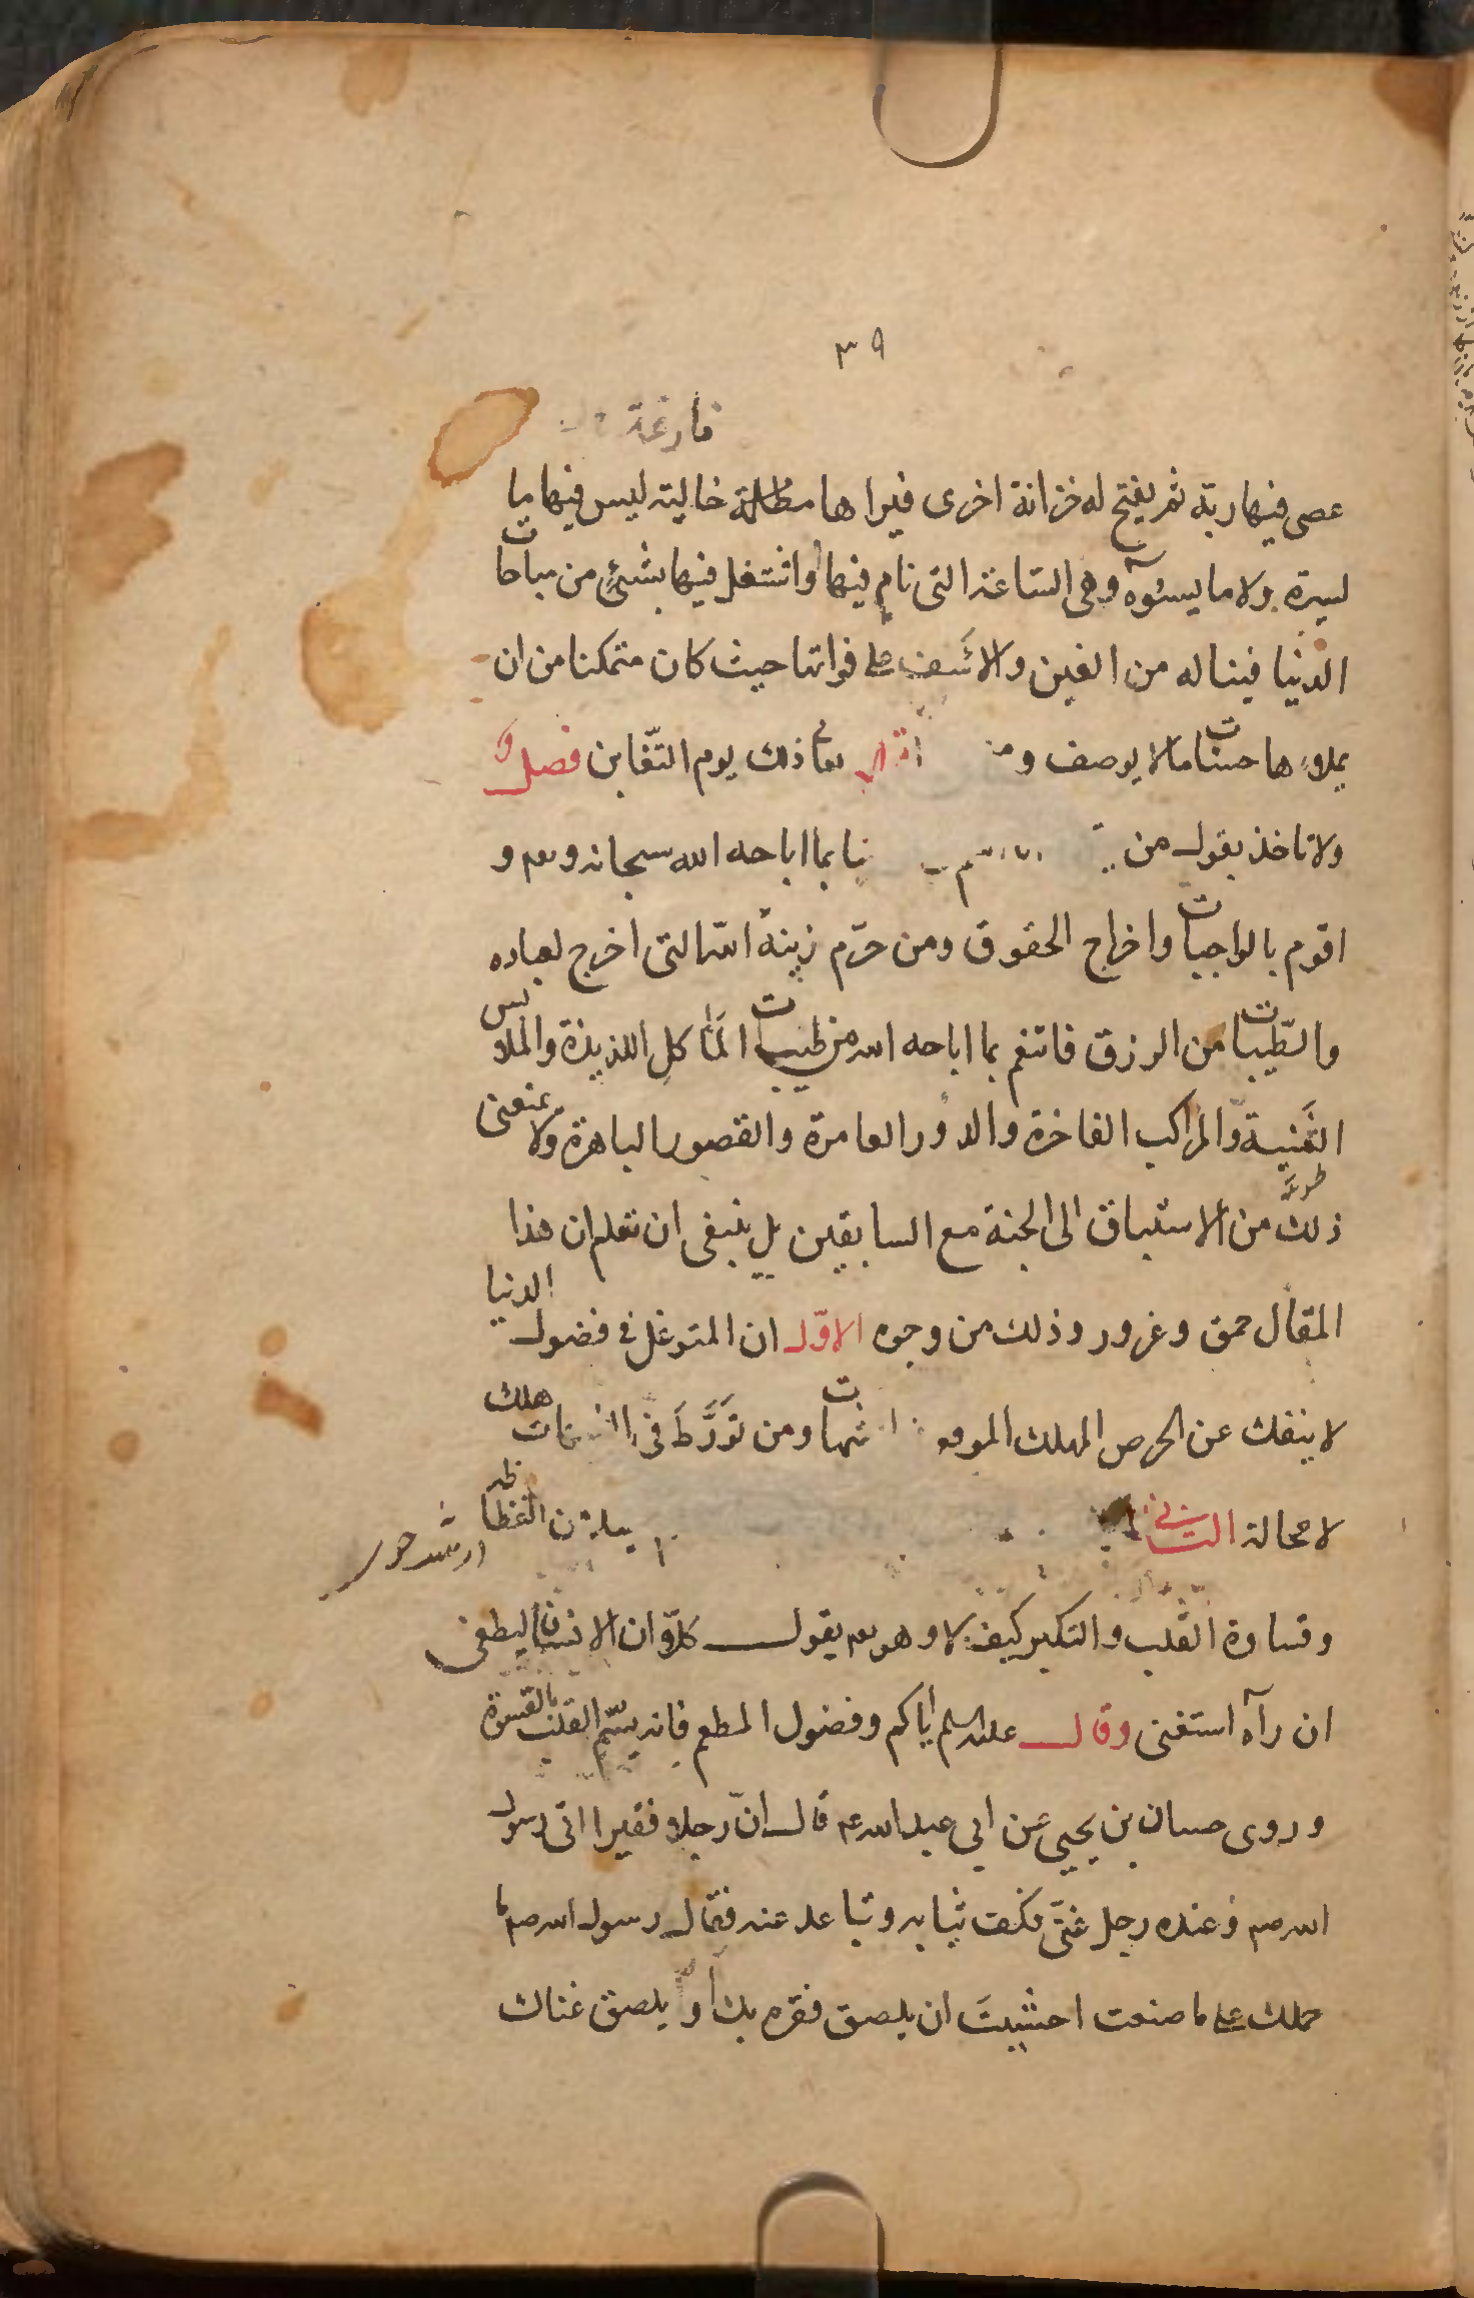 ٣٩
فارغة
عصى فيها ربه ثم يفتح له خزانة اخرى فيراها مظلمة خالية ليس فيها ما
يسره ولا ما يسوءه وهى الساعة التى نام فيها او اشتغل فيها بشئ من مباحات
الدنيا فيناله من الغبن والاسف على فواتها حيث كان متمكنا من ان
يملاءها حسنات ما لا يوصف ذلك يوم التغابن فصل و
ولا تاخذ بقول من بما اباحه الله سبحانه وتعم و
اقوم بالواجبات واخراج الحقوق ومن حرّم زينة الله التى اخرج لعباده
والطّيبات من الرزق فاتنعم بما اباحه الله من طيبات المأكل اللذيذة والملابس
الثمنية والمراكب الفاخرة والدور العامرة والقصور الباهرة ولا يمنعنى
ذلك من الاستباق الى الجنة مع السابقين بل ينبغى ان تعلم ان هذا
المقال حمق وغرور وذلك من وجوه الاوّل ان المتوغل فى فضول الدنيا
لا ينفك عن الحرص المهلك ومن تَوَرَّطَ فى هلك
لا محالة الثانى
وقساوة القلب والتكبر كيف لا وهو تعم يقول كلّا ان الانسان ليطغى
ان رآه استغنى وقال عليه السلم اياكم وفضول المطعم فانه يسّم القلب بالقسوة
وروى حسان بن يحيى عن ابى عبد الله عم قال انّ رجلا فقيرا اتى رسول
الله صم وعنده رجل غنىّ فكف ثيابه وتباعد عنه فقال رسول الله صم ما
حملك على ما صنعت اخشيتَ ان يلصق فقره بك او يلصق غناك